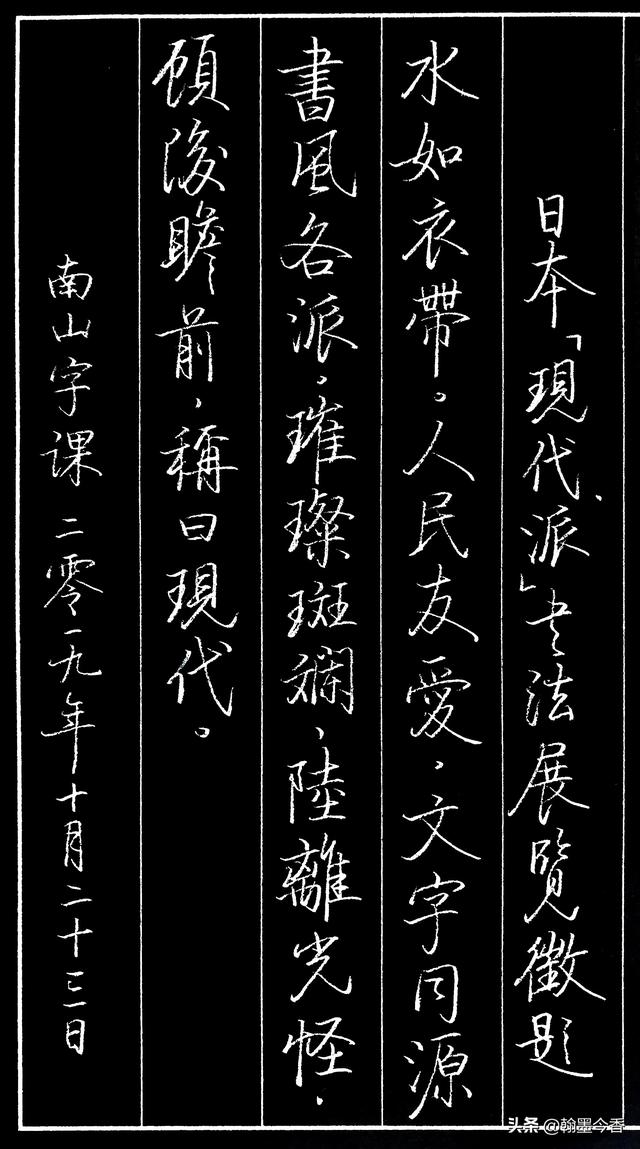 日本「現代派」书法展覽徵題
水如衣帶。人民友愛,文字同源
書風各派,璀璨斑斕,陸離光怪,
顧後瞻前,稱曰現代。
南山字课 二零一九年十月二十三日
头条 @翰墨今香